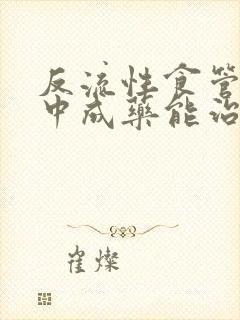 反流性食管
中成药能治
崔燦